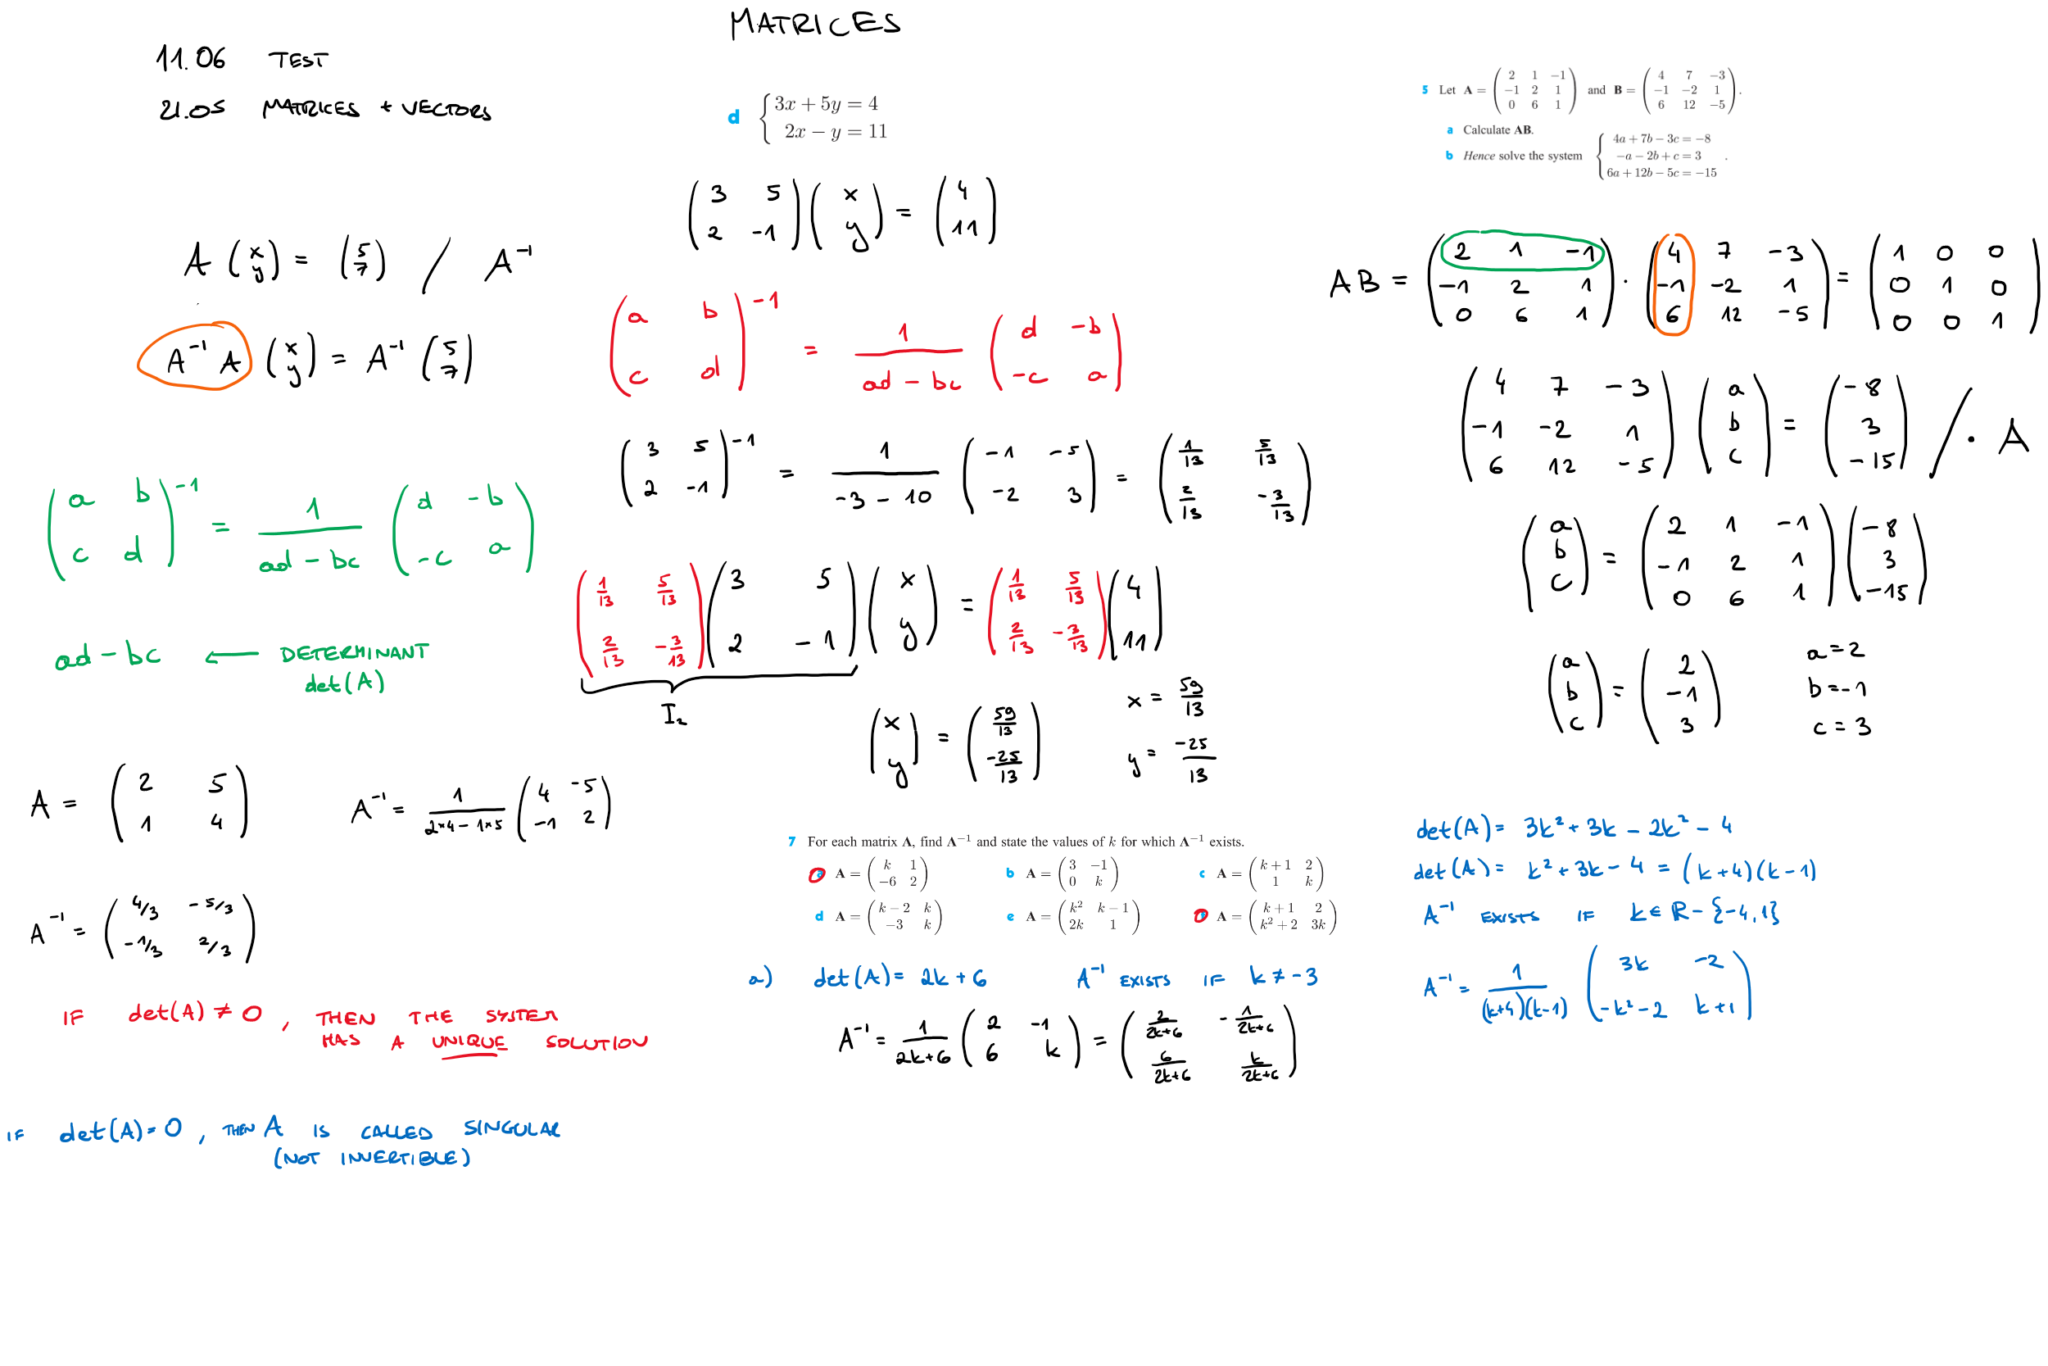 MATRICES
11.06 TEST
21.05 MATRICES + VECTORS
A (x y) = (5 7) / A⁻¹
A⁻¹ A (x y) = A⁻¹ (5 7)
(a b; c d)⁻¹ = 1/(ad - bc) (d -b; -c a)
ad - bc ← DETERMINANT
det(A)
A = (2 5; 1 4) A⁻¹ = 1/(2×4 - 1×5) (4 -5; -1 2)
A⁻¹ = (4/3 -5/3; -1/3 2/3)
IF det(A) ≠ 0, THEN THE SYSTEM
HAS A UNIQUE SOLUTION
IF det(A) = 0, THEN A IS CALLED SINGULAR
(NOT INVERTIBLE)
d { 3x + 5y = 4
2x − y = 11
(3 5; 2 -1) (x y) = (4 11)
(a b; c d)⁻¹ = 1/(ad - bc) (d -b; -c a)
(3 5; 2 -1)⁻¹ = 1/(-3 - 10) (-1 -5; -2 3) = (1/13 5/13; 2/13 -3/13)
(1/13 5/13; 2/13 -3/13) (3 5; 2 -1) (x y) = (1/13 5/13; 2/13 -3/13) (4 11)
I₂
(x y) = (59/13 -25/13) x = 59/13
y = -25/13
7 For each matrix A, find A⁻¹ and state the values of k for which A⁻¹ exists.
A = (k 1; −6 2) b A = (3 −1; 0 k) c A = (k + 1 2; 1 k)
d A = (k − 2 k; −3 k) e A = (k² k − 1; 2k 1) A = (k + 1 2; k² + 2 3k)
a) det(A) = 2k + 6 A⁻¹ EXISTS IF k ≠ -3
A⁻¹ = 1/(2k+6) (2 -1; 6 k) = (2/(2k+6) -1/(2k+6); 6/(2k+6) k/(2k+6))
5 Let A = (2 1 −1; −1 2 1; 0 6 1) and B = (4 7 −3; −1 −2 1; 6 12 −5).
a Calculate AB.
b Hence solve the system { 4a + 7b − 3c = −8
−a − 2b + c = 3 .
6a + 12b − 5c = −15
AB = (2 1 -1; -1 2 1; 0 6 1) · (4 7 -3; -1 -2 1; 6 12 -5) = (1 0 0; 0 1 0; 0 0 1)
(4 7 -3; -1 -2 1; 6 12 -5) (a b c) = (-8 3 -15) / · A
(a b c) = (2 1 -1; -1 2 1; 0 6 1) (-8 3 -15)
(a b c) = (2 -1 3) a = 2
b = -1
c = 3
det(A) = 3k² + 3k - 2k² - 4
det(A) = k² + 3k - 4 = (k+4)(k-1)
A⁻¹ EXISTS IF k ∈ R - {-4, 1}
A⁻¹ = 1/((k+4)(k-1)) (3k -2; -k²-2 k+1)